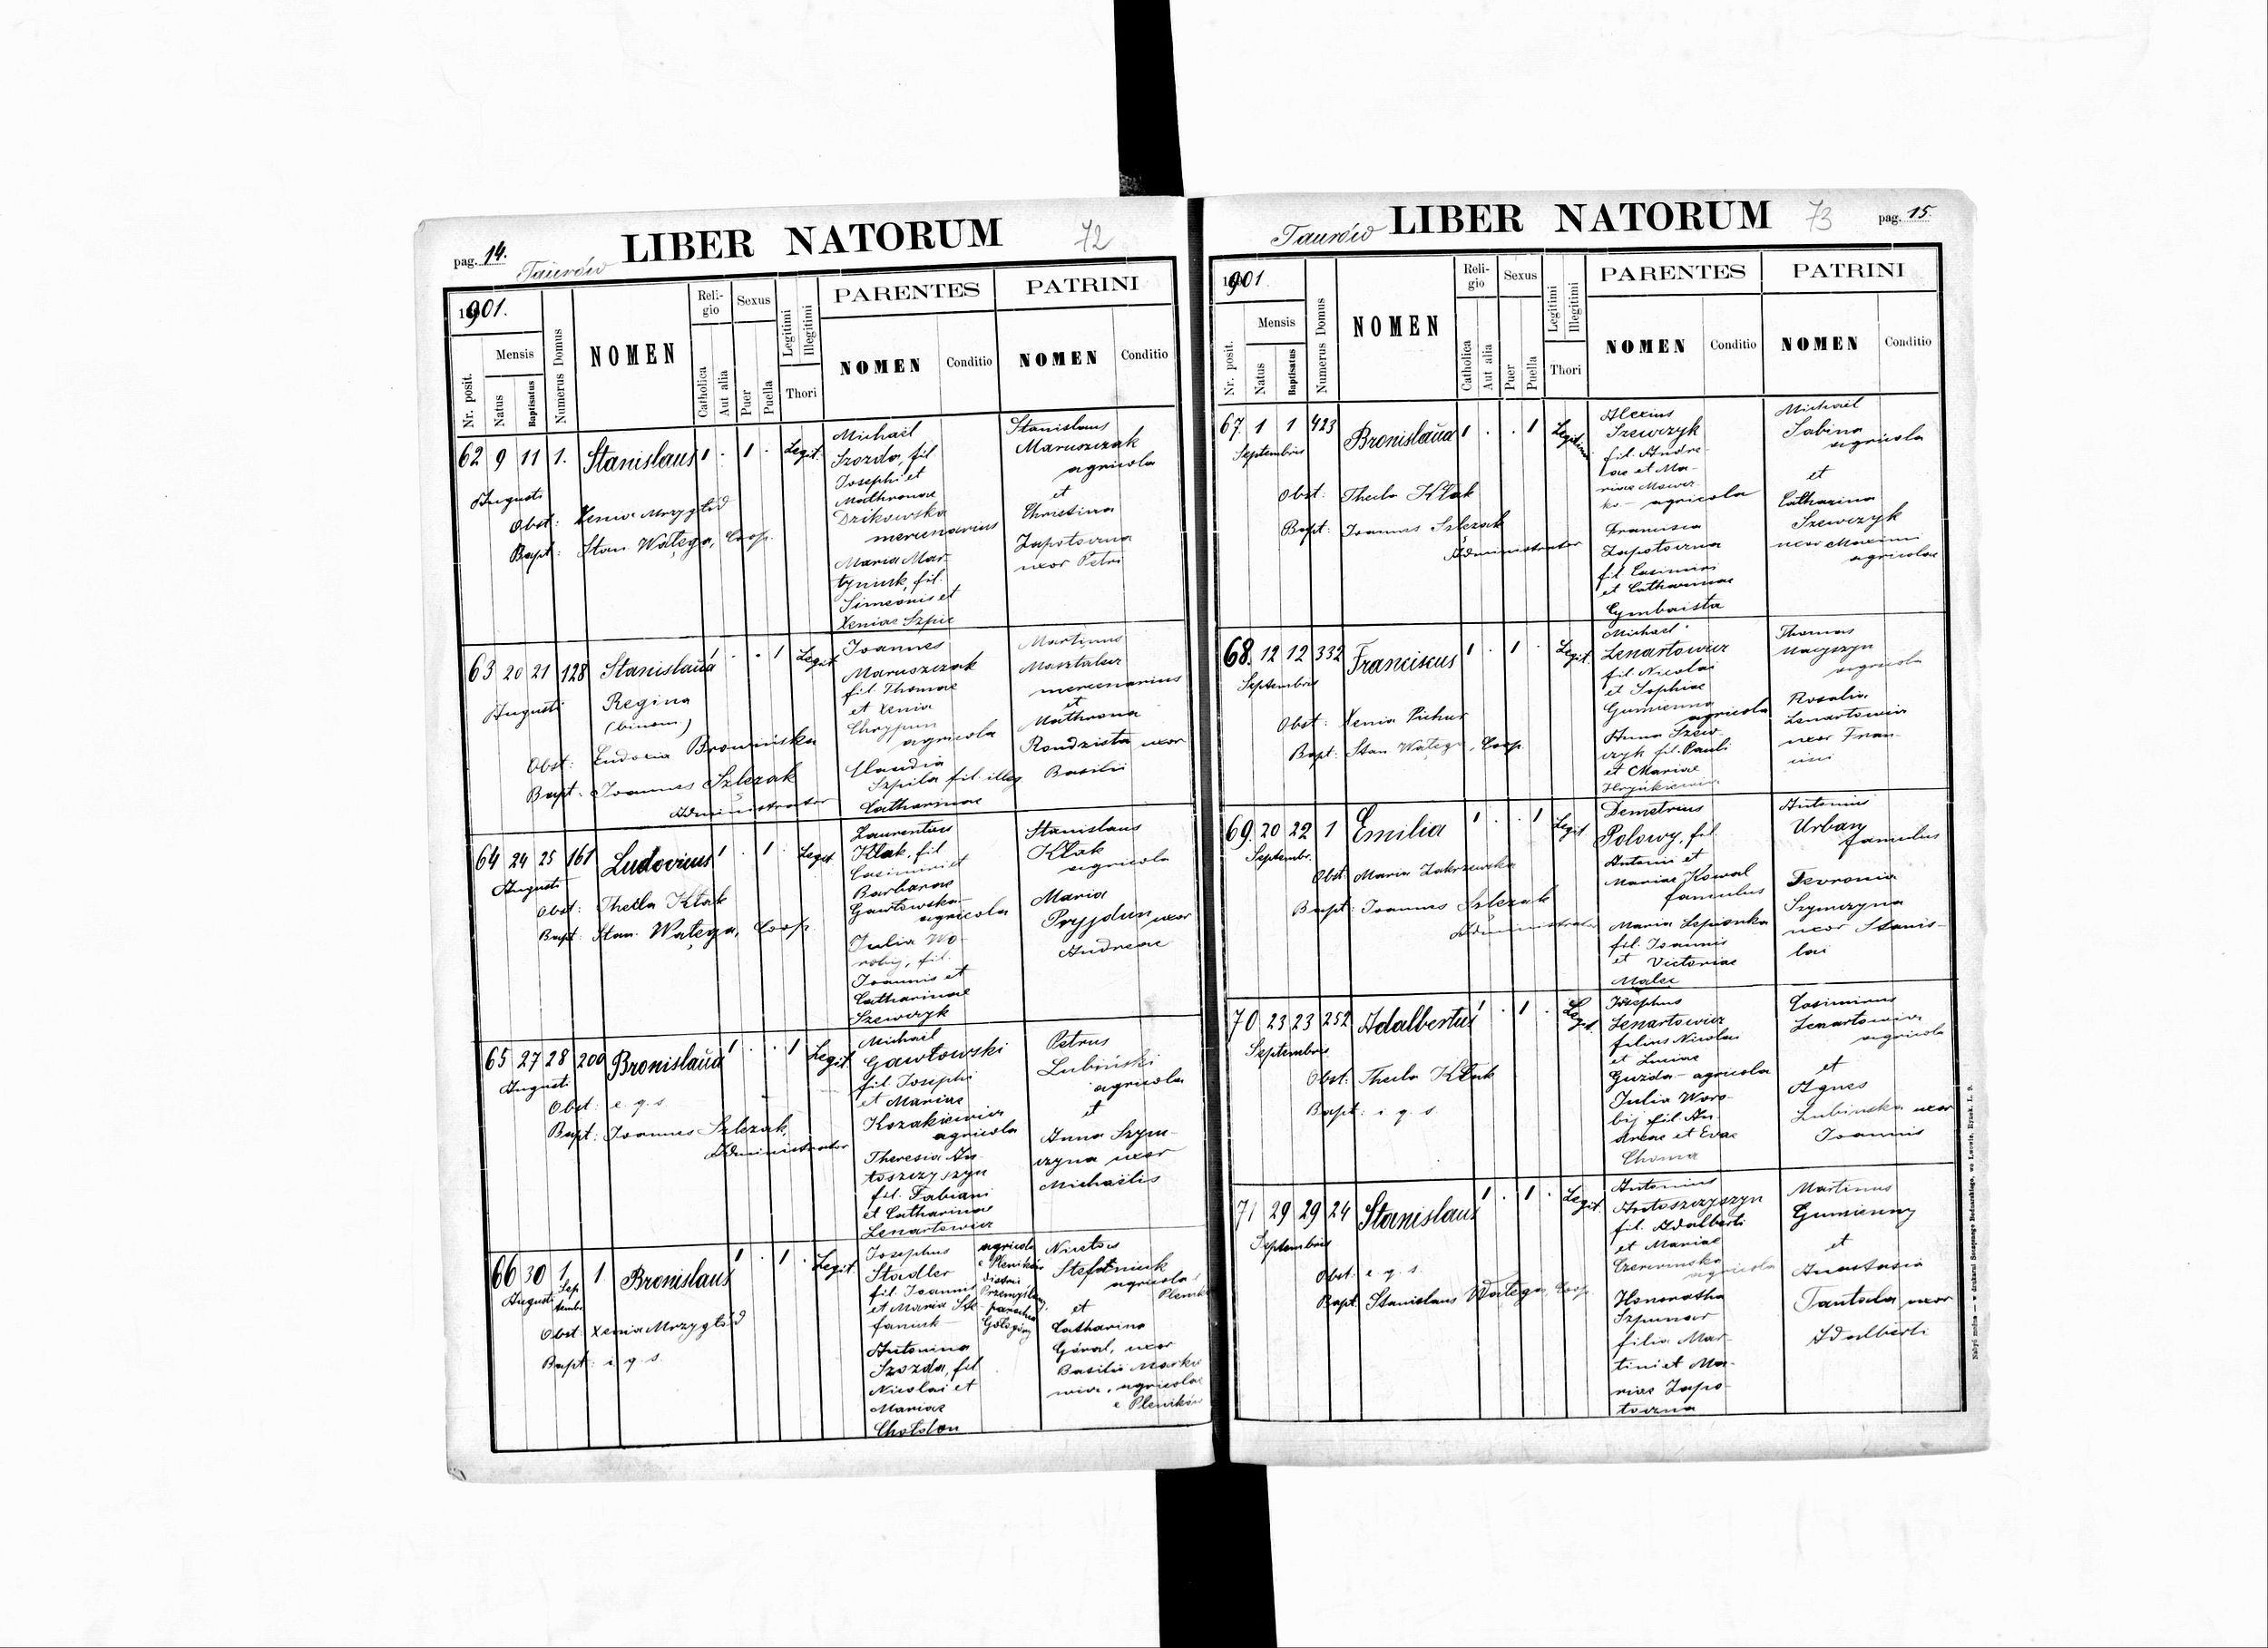 pag. 14.
Taurów
LIBER NATORUM
72
1901.
Nr. posit.
Mensis
Natus
Baptisatus
Numerus Domus
NOMEN
Reli-
gio
Catholica
Aut alia
Sexus
Puer
Puella
Legitimi
Illegitimi
Thori
PARENTES
NOMEN
Conditio
PATRINI
NOMEN
Conditio
62 9 11 1. Stanislaus 1 . 1 . Legit.
Augusti
Obst: Xenia Mrzygłód
Bapt: Stan. Wałęga, Coop.
Michael
Szozda, fil
Josephi et
Mathronae
Dzikowska
mercenarius
Maria Mar-
tyniuk, fil.
Simeonis et
Xeniae Szpic
Stanislaus
Maruszczak
agricola
et
Christina
Zapotoczna
uxor Petri
63 20 21 128 Stanislaŭa 1 . . 1 Legit.
Augusti
Regina
(binom)
Obst: Eudoxia Browińska
Bapt: Joannes Szlęzak
Administrator
Joannes
Maruszczak
fil Thomae
et Xenia
Chrypun
agricola
Claudia
Szpila fil illeg
Catharinae
Martinus
Masztalerz
mercenarius
et
Mathrona
Rondzista uxor
Basilii
64 24 25 161 Ludovicus 1 . 1 . Legit
Augusti
Obst: Thecla Kłak
Bapt: Stan. Wałęga, Coop.
Laurentius
Kłak, fil
Casimiri et
Barbarae
Gawłowska-
agricola
Julia Wo-
robij, fil.
Joannis et
Catharinae
Szewczyk
Stanislaus
Kłak
agricola
Maria
Pryjdun uxor
Andreae
65 27 28 200 Bronislaŭa 1 . . 1 Legit.
Augusti
Obst: e. q. s
Bapt: Joannes Szlęzak,
Administrator
Michael
Gawłowski
fil. Josephi
et Mariae
Kozakiewicz
agricola
Theresia An-
toszczyszyn
fil. Fabiani
et Catharinae
Lenartowicz
Petrus
Lubiński
agricola
et
Anna Szym-
czyna uxor
Michaëlis
66 30 1 1 Bronislaus 1 . 1 . Legit.
Augusti
Sep
tembr.
Obst: Xenia Mrzygłód
Bapt: i. q. s.
Josephus
Stadler
fil. Joannis
et Maria Ste-
faniuk
Antonina
Szozda, fil
Nicolai et
Mariae
Chołdon
agricola
e Pleników
Przemyślany
parochia
Gołogóry
Nicetas
Stefaniuk
agricola e
Plenik
et
Catharina
Góral, uxor
Basilii Marko
wicz, agricolae
e Pleników
Taurów
LIBER NATORUM
73
pag. 15.
1901.
Nr. posit.
Mensis
Natus
Baptisatus
Numerus Domus
NOMEN
Reli-
gio
Catholica
Aut alia
Sexus
Puer
Puella
Legitimi
Illegitimi
Thori
PARENTES
NOMEN
Conditio
PATRINI
NOMEN
Conditio
67. 1 1 423 Bronislaŭa 1 . . 1
Septembris
Obst: Thecla Kłak
Bapt: Joannes Szlęzak
Administrator
Alexius
Szewczyk
fil. Andre-
ae et Ma-
riae
agricola
Francisca
Zapotoczna
fil Casimiri
et Catharinae
Cymbaista
Michael
Sabina
agricola
et
Catharina
Szewczyk
uxor Maximi
agricolae
68. 12 12 332 Franciscus 1 . 1 . Legit.
Septembris
Obst: Xenia Pichur
Bapt: Stan Wałęga, Coop.
Michael
Lenartowicz
fil. Nicolai
et Sophiae
Gumienna
agricola
Anna Szew-
czyk fil. Pauli
et Mariae
Thomas
agricola
Rosalia
Lenartowicz
uxor Fran-
cisci
69. 20 22 1 Emilia 1 . . 1 Legit
Septembr.
Obst: Maria Zakrzewska
Bapt: Joannes Szlęzak
Administrator
Demetrius
Polowy, fil
Antonii et
Mariae Kowal
famulus
Maria Lepionka
fil. Joannis
et Victoriae
Malec
Antonius
Urban
famulus
Fevronia
Szymczyna
uxor Stanis-
lai
70 23 23 252 Adalbertus 1 . 1 . Legit.
Septembris
Obst: Thecla Kłak
Bapt: i. q. s.
Josephus
Lenartowicz
filius Nicolai
et Luciae
Guzda - agricola
Julia Woro-
bij fil An-
dreae et Evae
Choma
Casimirus
Lenartowicz
agricola
et
Agnes
Lubinska uxor
Joannis
71 29 29 24 Stanislaus 1 . 1 . Legit.
Septembris
Obst: e. q. s.
Bapt: Stanislaus Wałęga, Coop.
Antonius
Antoszczyszyn
fil. Adalberti
et Mariae
Czerwinska
agricola
Honoratha
Szpunar
filia Mar-
tini et Ma-
riae Zapo-
toczna
Martinus
Gumienny
et
Anastasia
Tantala uxor
Adalberti